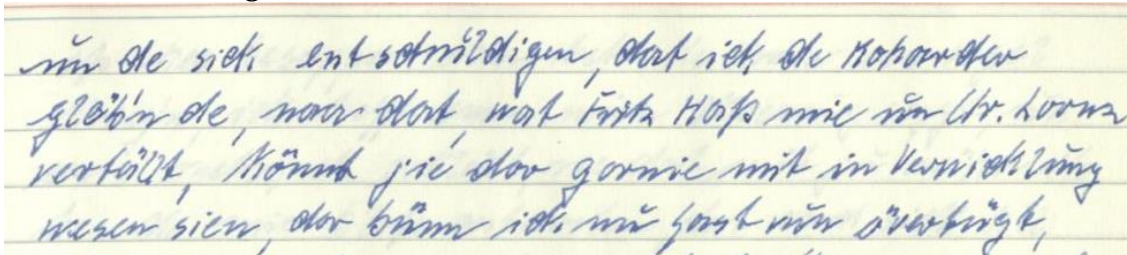 un de sick entschuldigen, dat ick de
glöb'n de, naa dat, wat Fritz Haß mie un Chr.
vertällt, könnt jie dor gornie mit in Verwicklung
wesen sien, dor bünn ick nu fast vun övertügt,